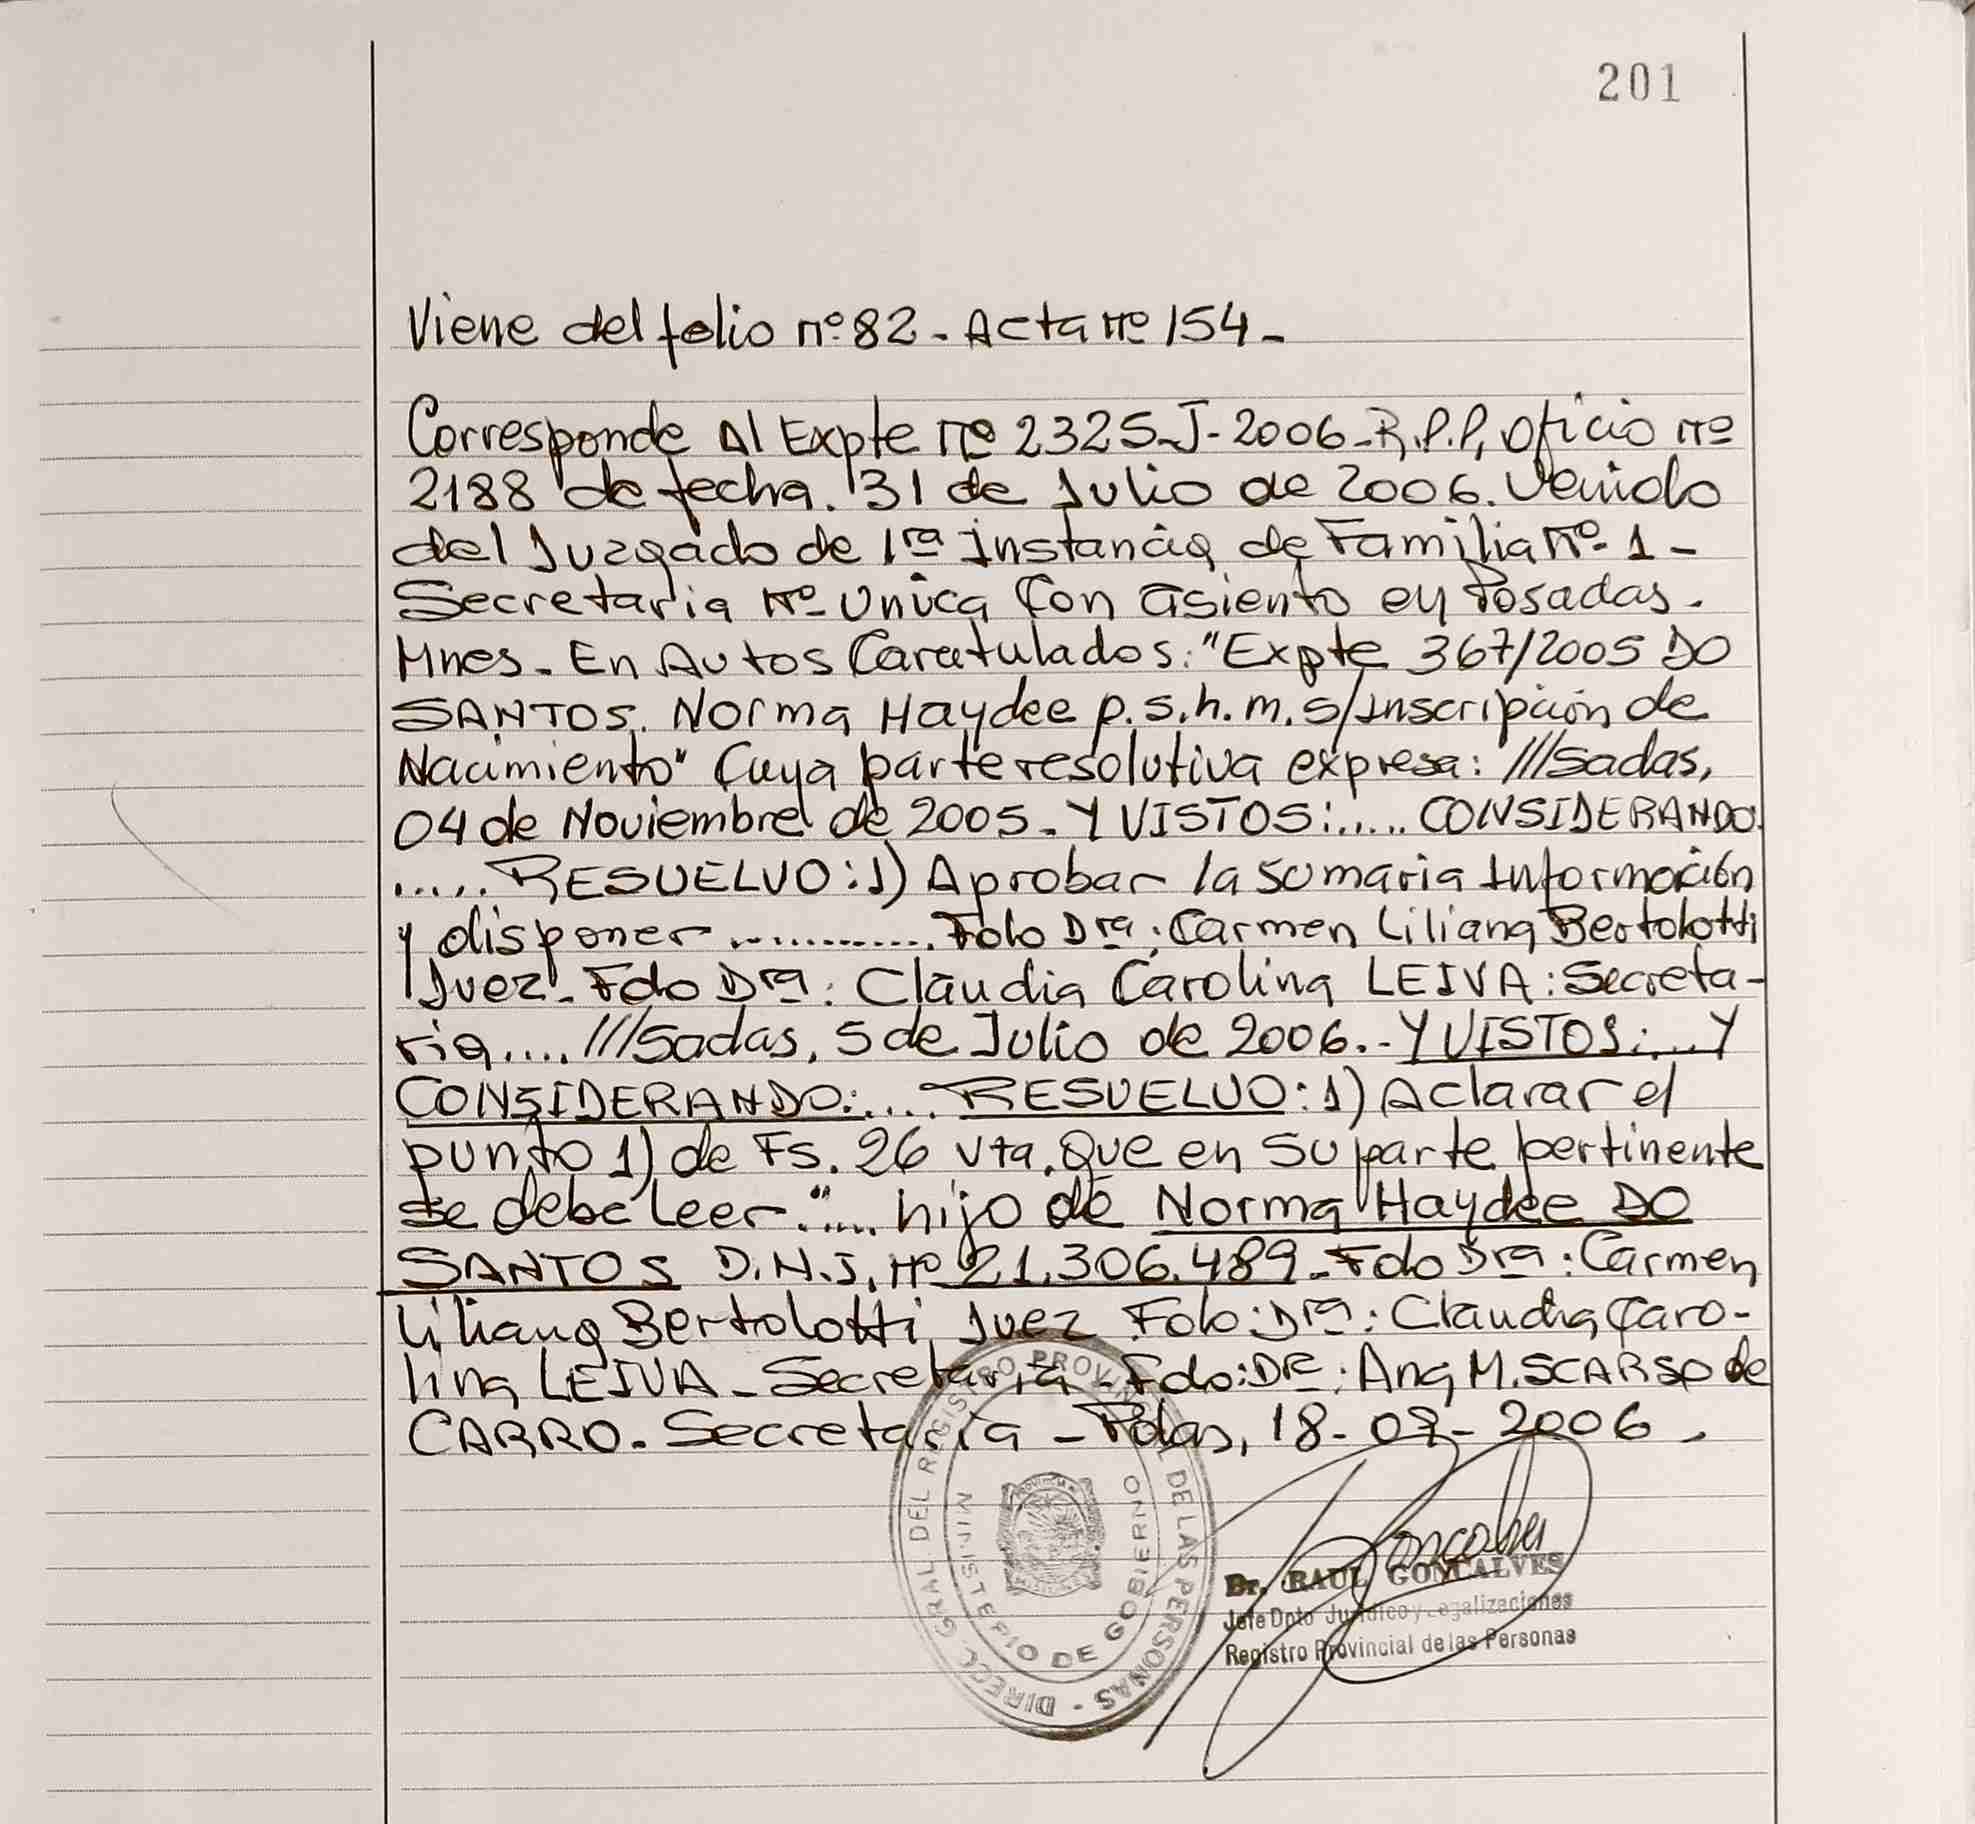 201
Viene del folio nº 82 - Acta nº 154 -
Corresponde Al Expte nº 2325-J-2006-R.P.P, oficio nº
2188 de fecha. 31 de Julio de 2006. Venido
del Juzgado de 1ra instancia de Familia nº 1 -
Secretaria nº Unica Con asiento en Posadas.
Mnes. En Autos Caratulados: "Expte 367/2005 DO
SANTOS, Norma Haydee p.s.h.m. s/Inscripción de
Nacimiento" Cuya parte resolutiva expresa: ///sadas,
04 de Noviembre de 2005. Y VISTOS:..... CONSIDERANDO.
..... RESUELVO: 1) Aprobar la sumaria Información
y disponer ............ Fdo Dra: Carmen Liliana Bertolotti
Juez. Fdo Dra: Claudia Carolina LEIVA: Secreta-
ria.... ///sadas, 5 de Julio de 2006.- Y VISTOS:... Y
CONSIDERANDO:.... RESUELVO: 1) Aclarar el
punto 1) de Fs. 26 vta. Que en su parte pertinente
se debe leer "..... hijo de Norma Haydee DO
SANTOS D.N.I. nº 21.306.489 - Fdo Dra: Carmen
Liliana Bertolotti Juez Fdo: Dra: Claudia Caro-
lina LEIVA - Secretaria - Fdo: Dra: Ana M. SCARSO de
CARRO. Secretaria - Pdas, 18-07-2006.
DIRECC. GRAL DEL REGISTRO PROVINCIAL DE LAS PERSONAS -
MINISTERIO DE GOBIERNO
Dr. RAUL GONCALVES
Jefe Dpto Jurídico y Legalizaciones
Registro Provincial de las Personas